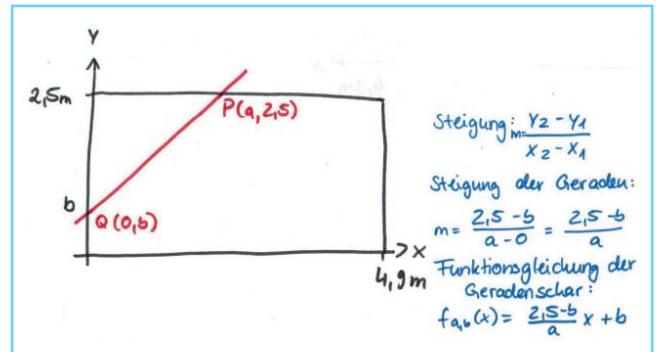 y
2,5m
P(a, 2,5)
b
Q (0,b)
> x
4,9m
Steigung: m= y2 - y1 / x2 - x1
Steigung der Geraden:
m = 2,5 - b / a - 0 = 2,5 - b / a
Funktionsgleichung der
Geradenschar:
fa,b(x) = 2,5-b / a x + b